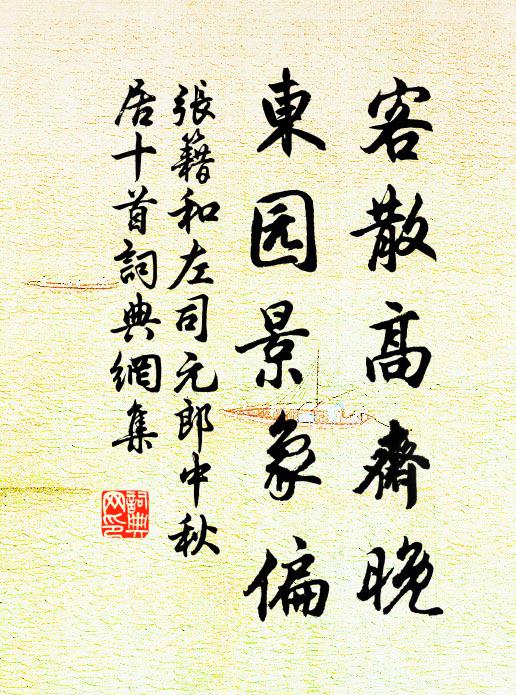 客散高齋晚
東园景象偏
張籍和左司元郎中秋
居十首詞典網集
詞典
网印